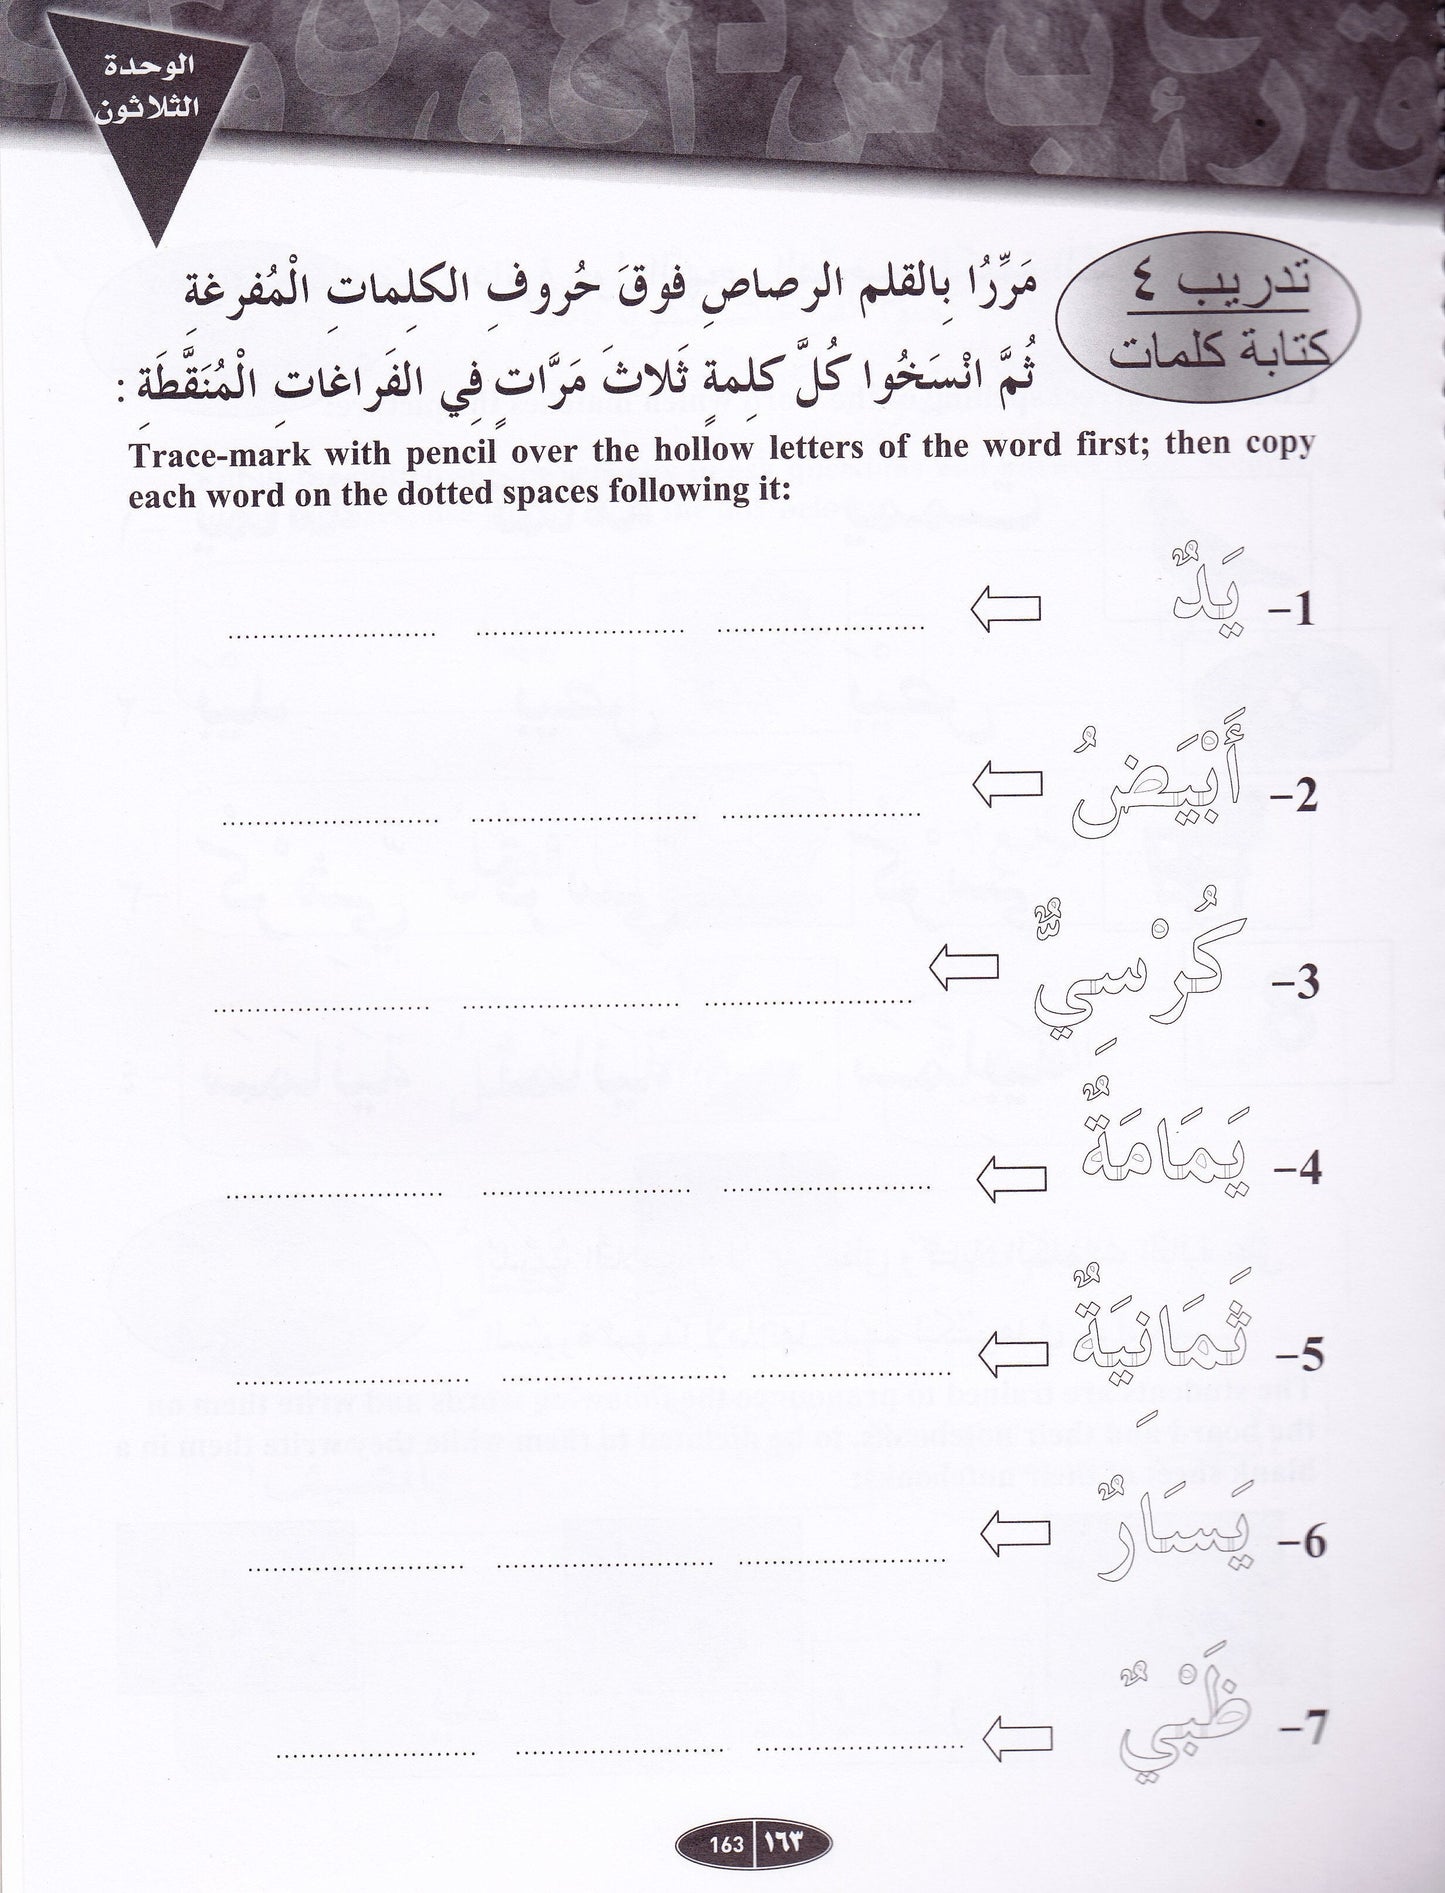 الوحدة
الثلاثون
تدريب ٤
كتابة كلمات
مَرِّرُا بِالقلم الرصاصِ فوقَ حُروفِ الكلِماتِ الْمُفرغةِ
ثُمَّ انْسَخُوا كُلَّ كلِمةٍ ثَلاثَ مَرَّاتٍ فِي الفَراغاتِ الْمُنَقَّطَةِ :
Trace-mark with pencil over the hollow letters of the word first; then copy
each word on the dotted spaces following it:
1- يَدٌ
2- أَبْيَضُ
3- كُرْسِيٌّ
4- يَمَامَةٌ
5- ثَمَانِيَةٌ
6- يَسَارٌ
7- ظَبْيٌ
163 ١٦٣